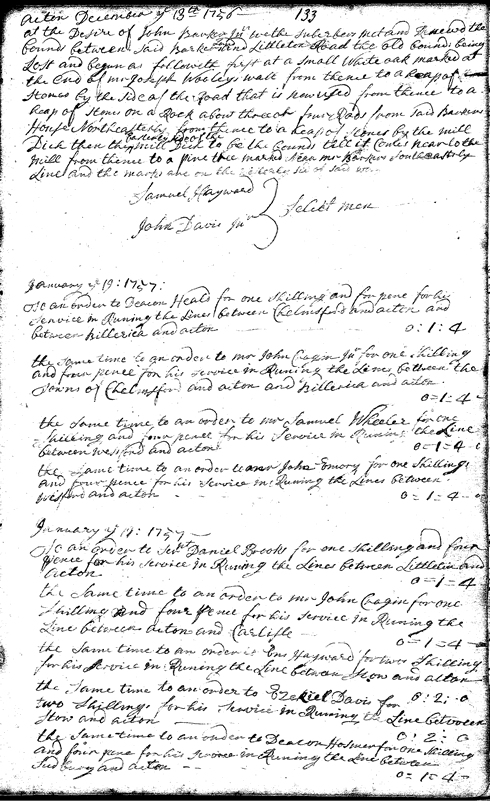 acton December ye 13th 1756 133
at the Desire of John Barker Jur we the Subscribers met and Renewed the
bounds between Said Barker and Littleton Road the old bounds being
Lost and begun as followeth first at a Small White oak marked at
the End of mr Joseph Wooleys wall from thence to a heap of
Stones by the Side of the Road that is now used from thence to a
heap of Stones on a Rock about three or four Rods from Said Barkers
House Northeasterly from thence to a heap of Stones by the mill
Dick then the mill Dick to be the bounds till it Comes near to the
mill from thence to a pine tree marked Near mr Barkers Southeasterly
Line and the marks are on the
Samuel Hayward
John Davis Jur
Select men
January ye 19: 1757:
To an order to Deacon Heald for one Shilling and for pene for his
Service in Runing the Lines between Chelmsford and acton and
between Billerica and acton 0:1:4
the Same time to an order to mr John Cragin Jur for one Shilling
and four pence for his Service in Runing the Lines between the
Towns of Chelmsford and acton and Billerica and acton
0=1=4
the Same time to an order to mr Samuel Wheeler for one
Shilling and four pence for his Service in Runing the Line
between Wesford and acton 0=1=4
the Same time to an order to mr John Emory for one Shilling
and four pence for his Service in Runing the Lines between
Wesford and acton 0=1=4
January ye 19: 1757
To an order to Sert Daniel Brooks for one Shilling and four
pence for his Service in Runing the Lines between Littleton and
acton 0=1=4
the Same time to an order to mr John Cragin for one
Shilling and four pence for his Service in Runing the
Line between acton and Carlisle 0=1=4
the Same time to an order to Ens Hayward for two Shilling
for his Service in Runing the Line between Stow and acton
0:2:0
the Same time to an order to Ezekiel Davis for
two Shillings for his Service in Runing the Line between
Stow and acton 0:2:0
the Same time to an order to Deacon Hosmer for one Shilling
and four pene for his Service in Runing the Line between
Sudbury and acton
0=1=4